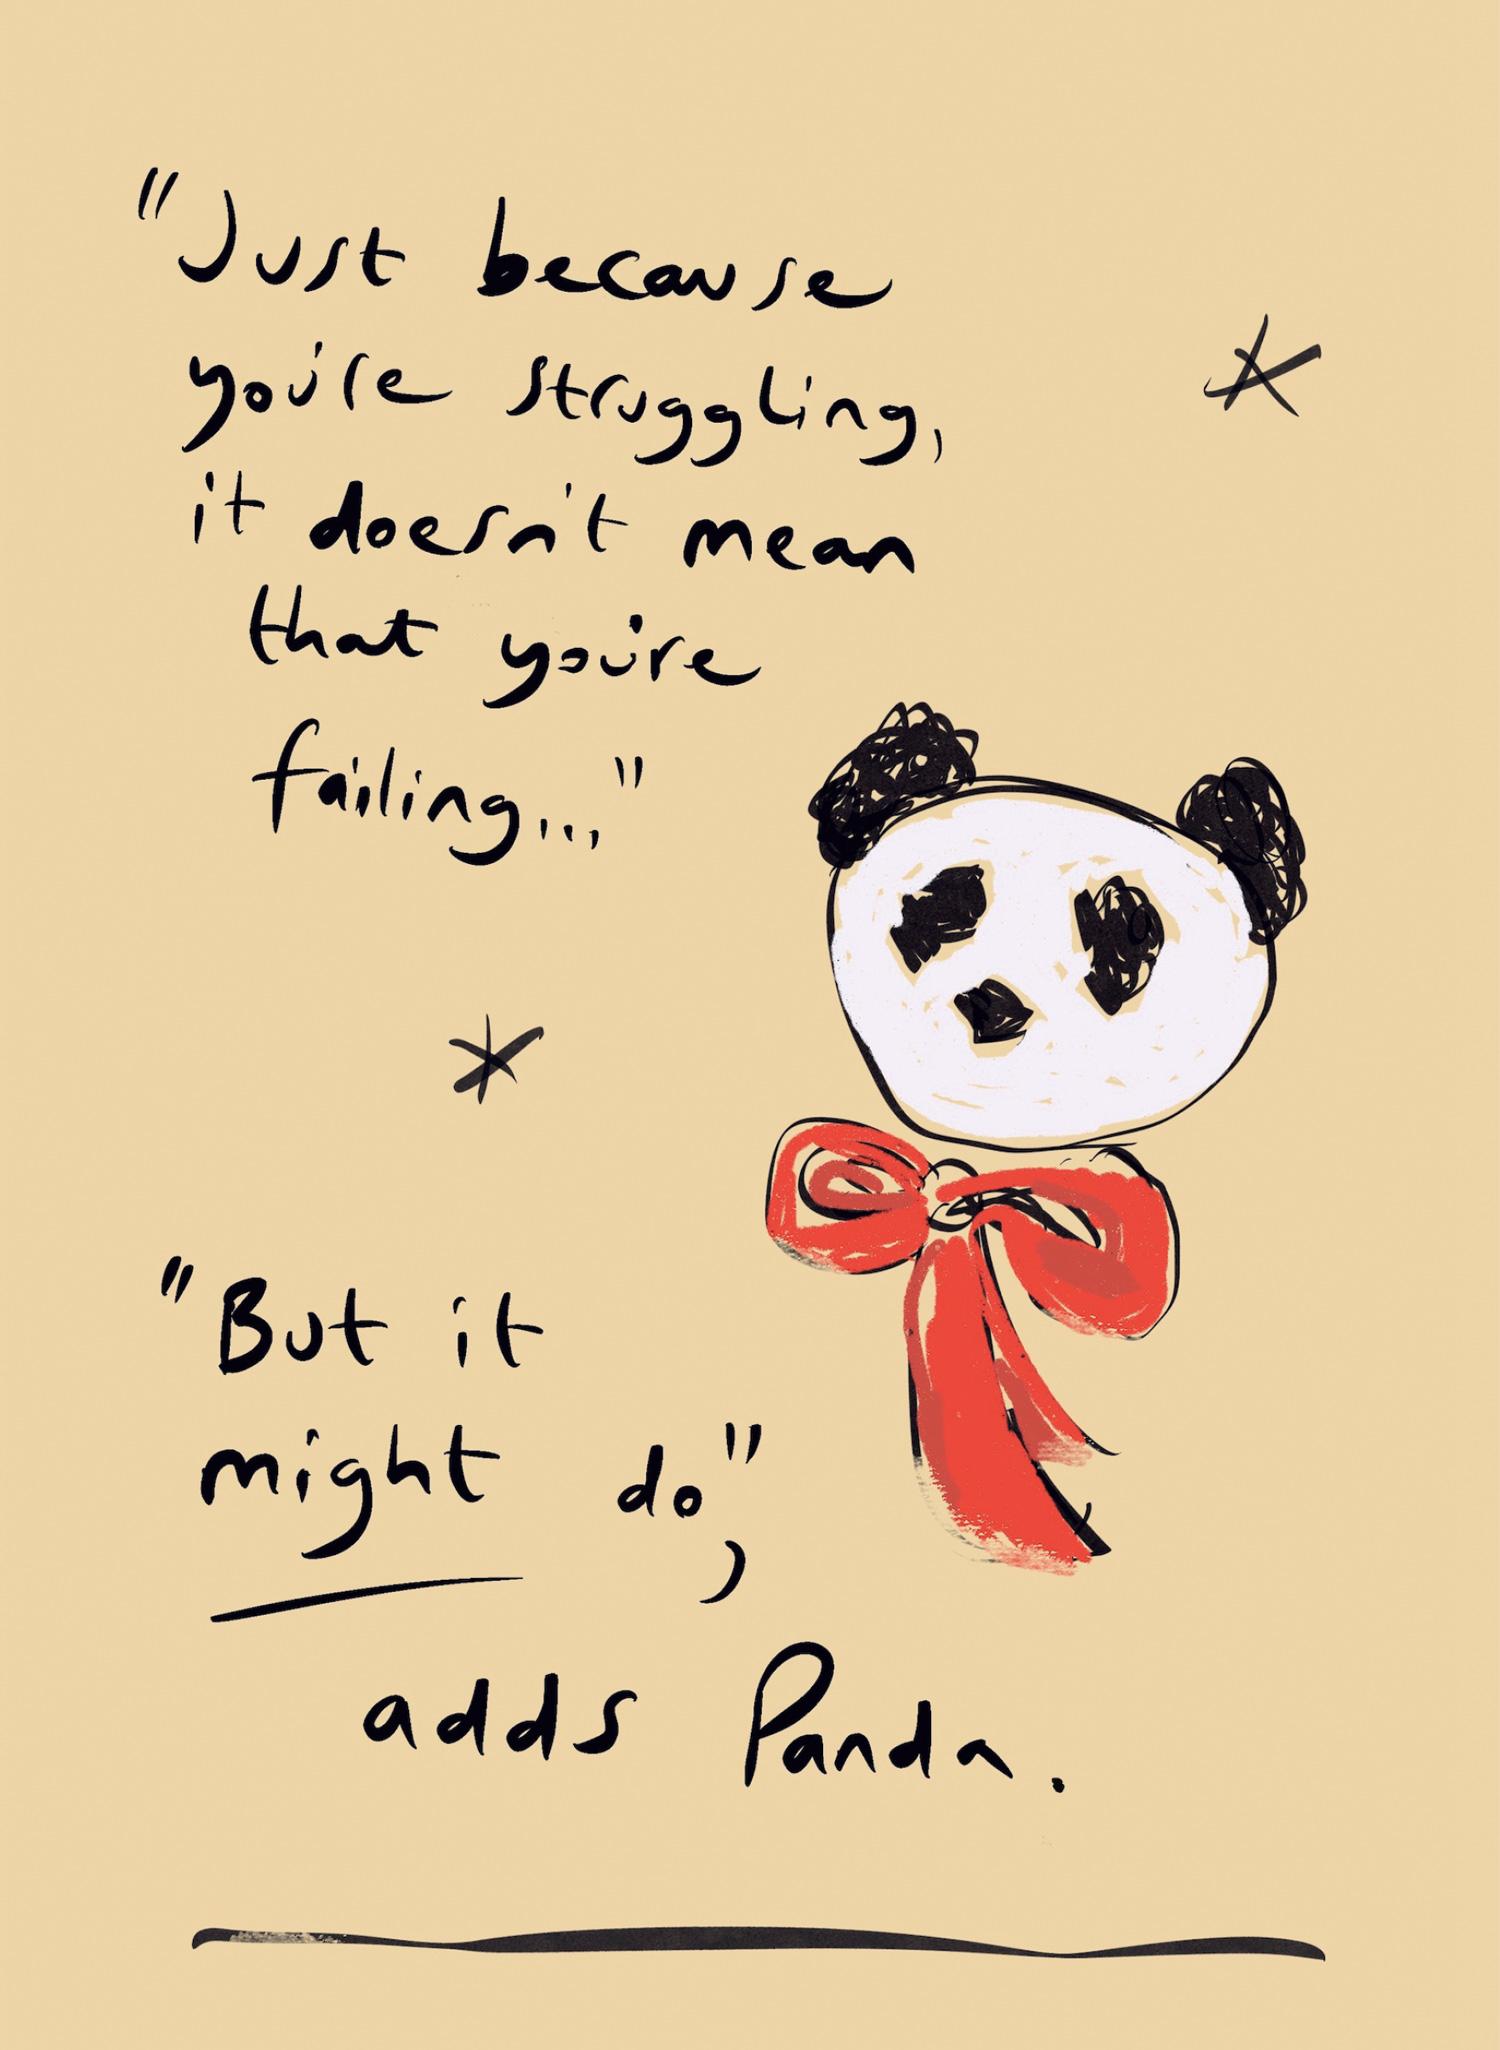 "Just because
you're struggling,
it doesn't mean
that you're
failing..."
"But it
might do,"
adds Panda.